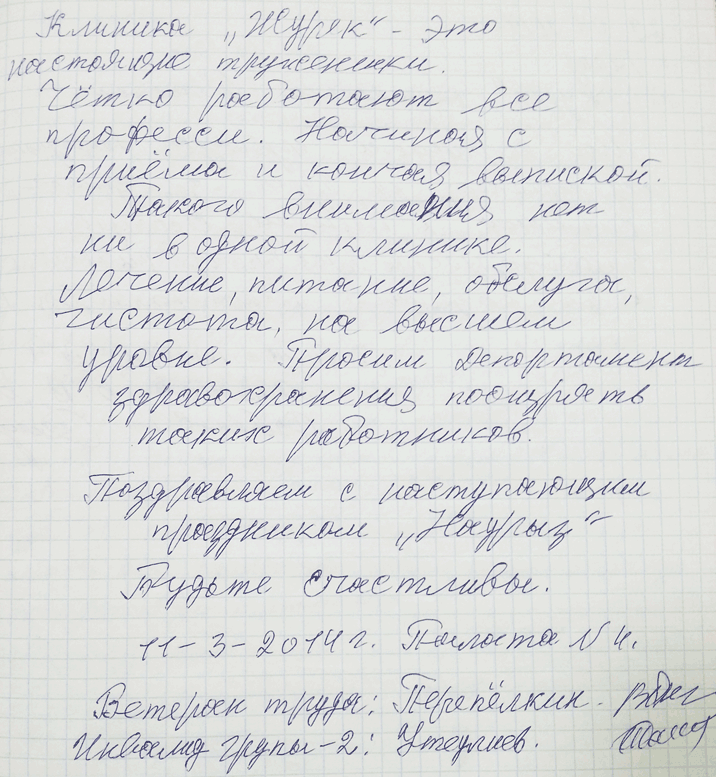 Клиника „Журек“ - это
настоящие труженики.
Чётко работают все
професси. Начиная с
приёма и кончая выпиской.
Такого внимания нет
ни в одной клинике.
Лечение, питание, обслуга,
чистота, на высшем
уровне. Просим Департамент
здравохранения поощрять
таких работников.
Поздравляем с наступающим
праздником „Наурыз“
Будьте счастливы.
11-3-2014 г. Палата N 4.
Ветеран труда: Перепёлкин.
Инвалид групы-2: Утеулиев.